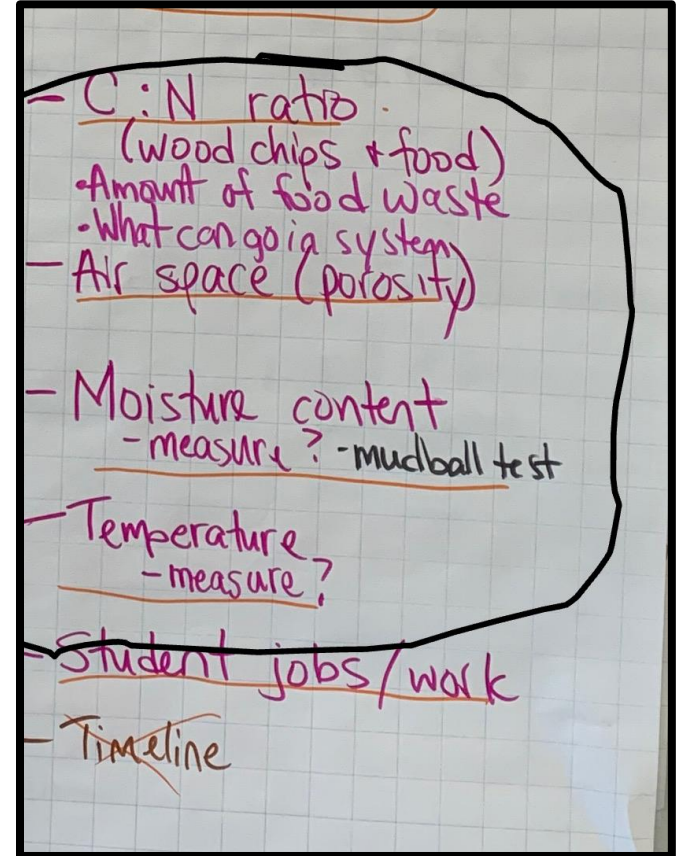 - C:N ratio
(wood chips + food)
•Amount of food waste
•What can go in system
- Air space (porosity)
- Moisture content
-measure? -mudball test
-Temperature
-measure?
-Student jobs/work
- Timeline